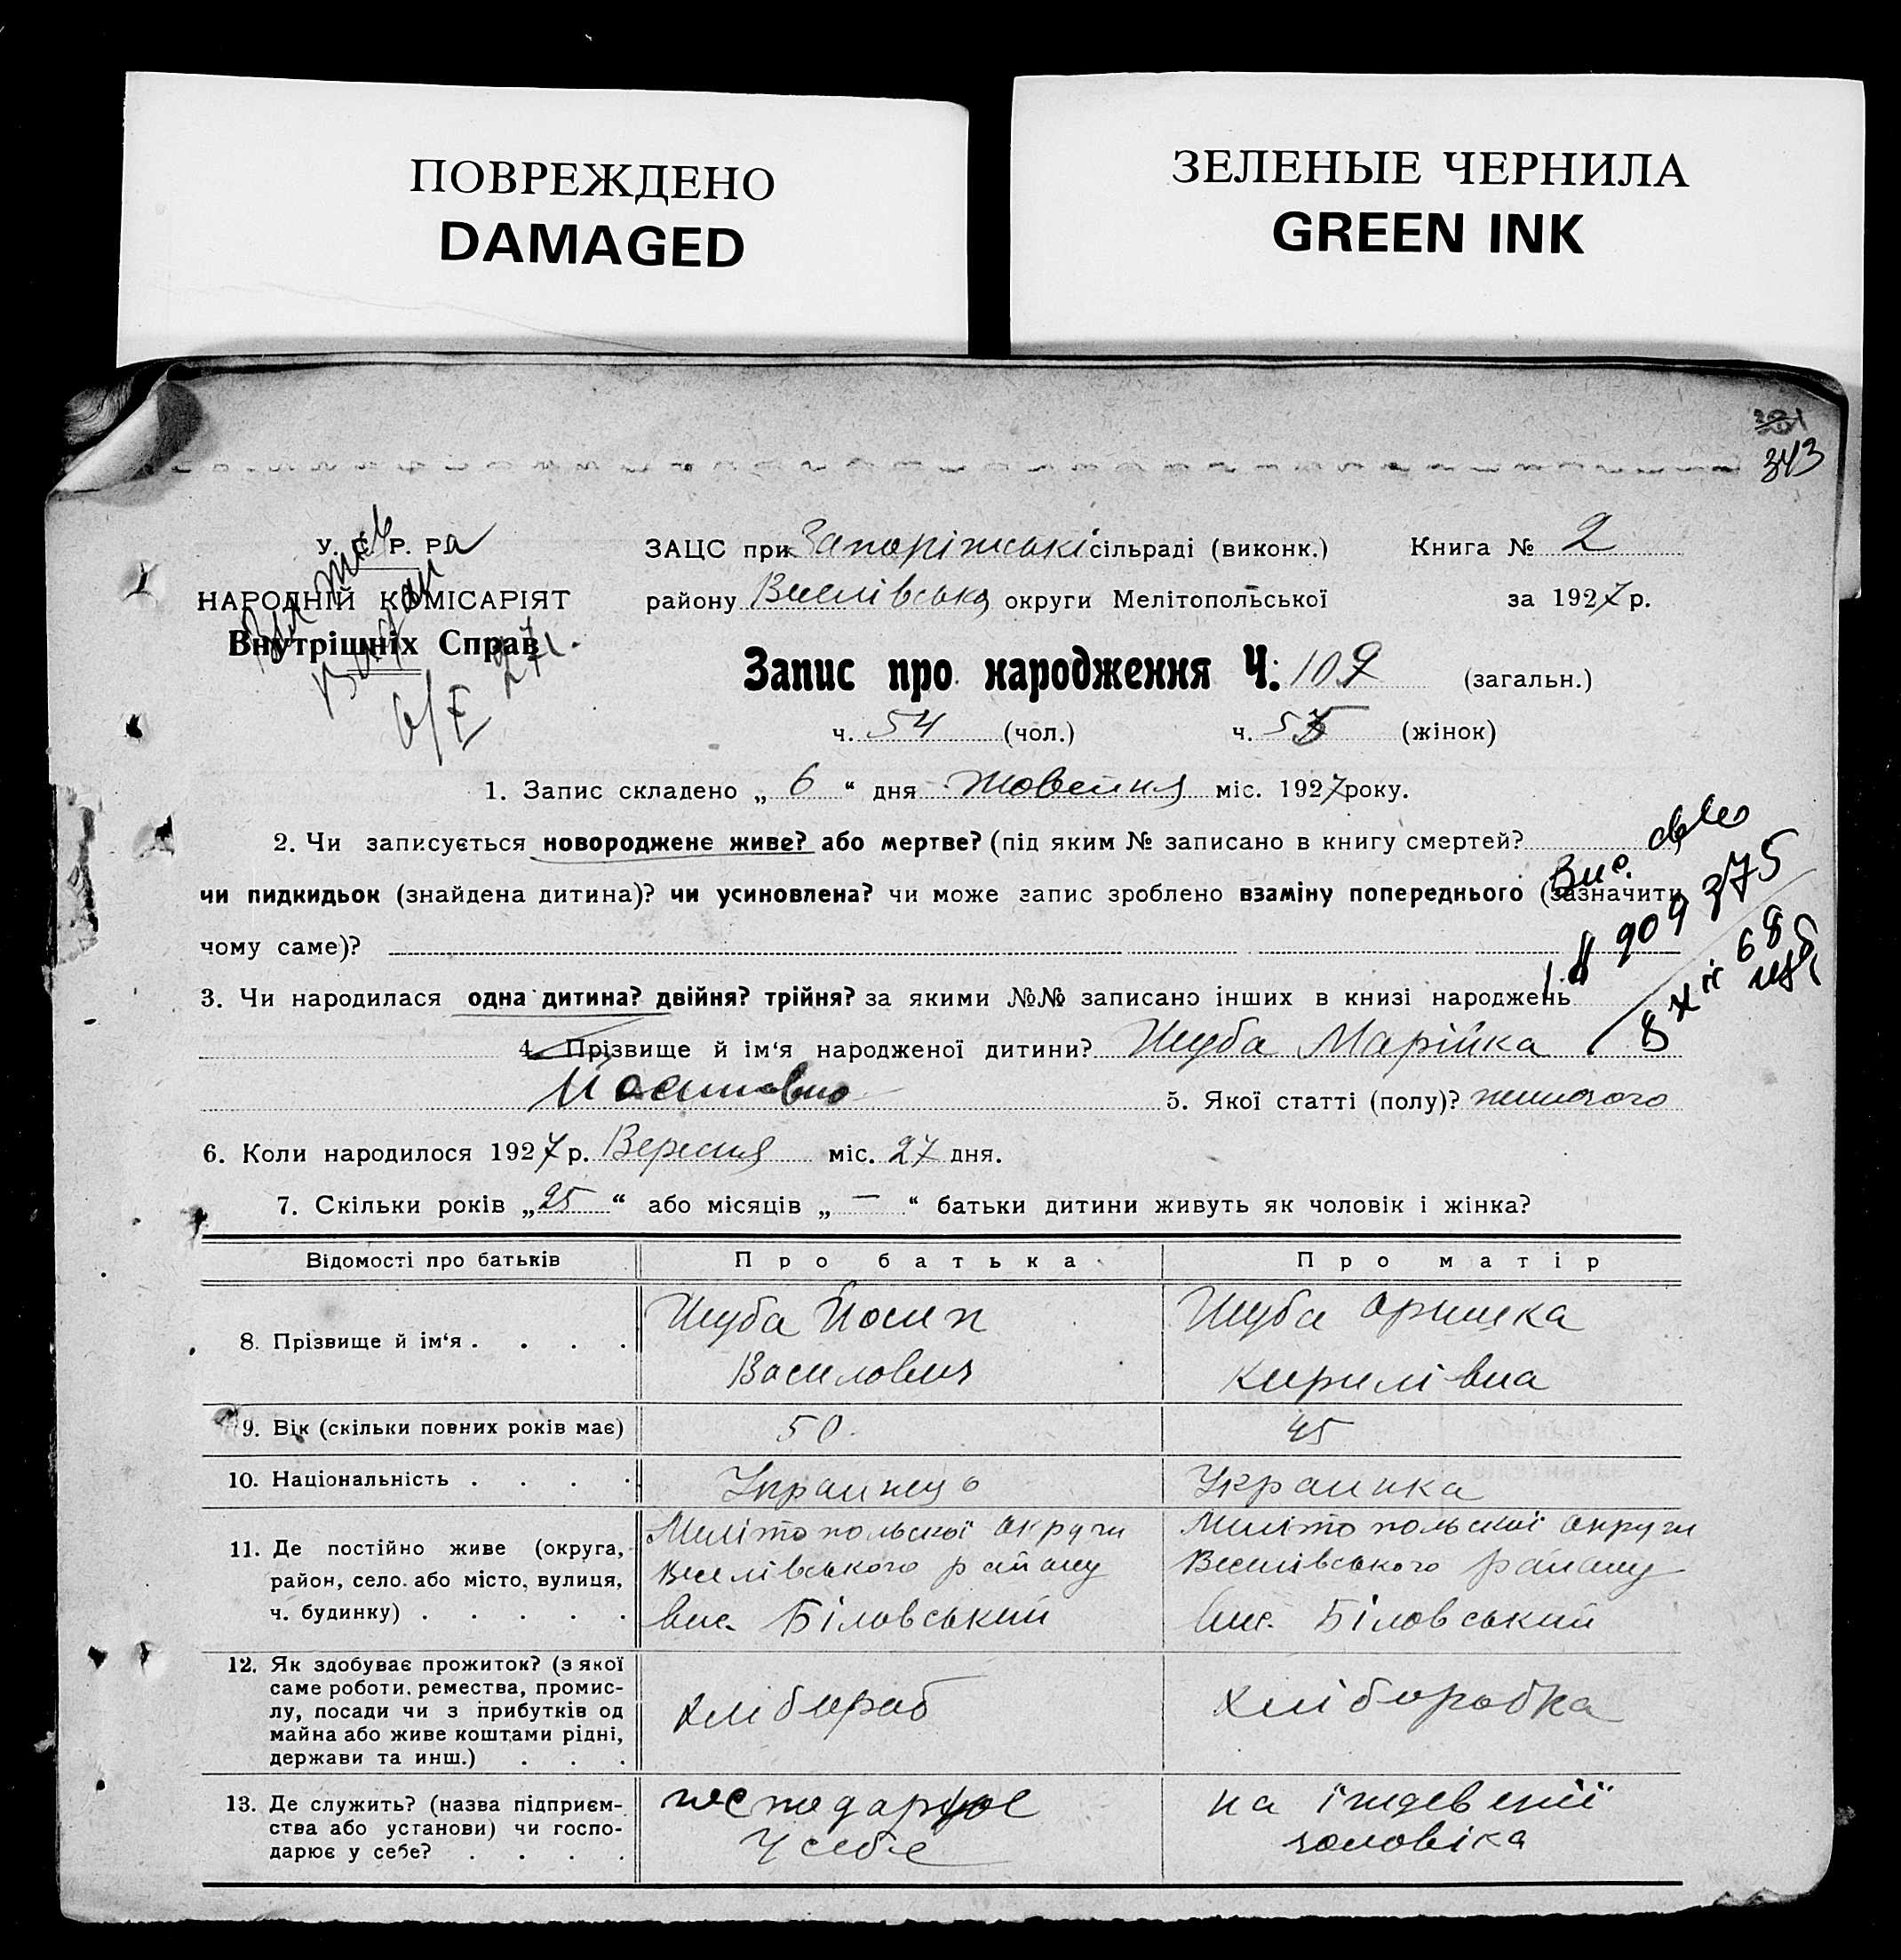 ПОВРЕЖДЕНО
DAMAGED
ЗЕЛЕНЫЕ ЧЕРНИЛА
GREEN INK
343
У. С. Р. Р.
НАРОДНІЙ КОМІСАРІЯТ
Внутрішніх Справ
6/X 27
ЗАЦС при Запоріжські сільраді (виконк.) Книга № 2
району Веселівська округи Мелітопольської за 1927 р.
Запис про народження Ч. 109 (загальн.)
ч. 54 (чол.) ч. 55 (жінок)
1. Запис складено „ 6 “ дня Жовтня міс. 1927 року.
2. Чи записується новороджене живе? або мертве? (під яким № записано в книгу смертей?
чи пидкидьок (знайдена дитина)? чи усиновлена? чи може запис зроблено взаміну попереднього (зазначити
чому саме)?
909 375
3. Чи народилася одна дитина? двійня? трійня? за якими №№ записано інших в книзі народжень
8 XII 68
4. Прізвище й ім‘я народженої дитини? Шуба Марійка
Йосиповно 5. Якої статті (полу)? жиночого
6. Коли народилося 1927 р. Вересня міс. 27 дня.
7. Скільки років „ 25 “ або місяців „ — “ батьки дитини живуть як чоловік і жінка?
Відомості про батьків Про батька Про матір
8. Прізвище й ім‘я . . . . Шуба Йосип Шуба Оришка
Василович Кирилівна
9. Вік (скільки повних років має) 50. 45
10. Національність . . . . Украинець Украинка
11. Де постійно живе (округа, Мелітопольскої округи Мелітопольскої округи
район, село або місто, вулиця, Веселівського району Веселівського району
ч. будинку) . . . . . вис. Біловський вис. Біловський
12. Як здобуває прожиток? (з якої
саме роботи, ремества, промис-
лу, посади чи з прибутків од хлібороб хліборобка
майна або живе коштами рідні,
держави та инш.) . . .
13. Де служить? (назва підприєм- господарює на їждевенії
ства або установи) чи госпо- у себе чоловіка
дарює у себе? . . . .